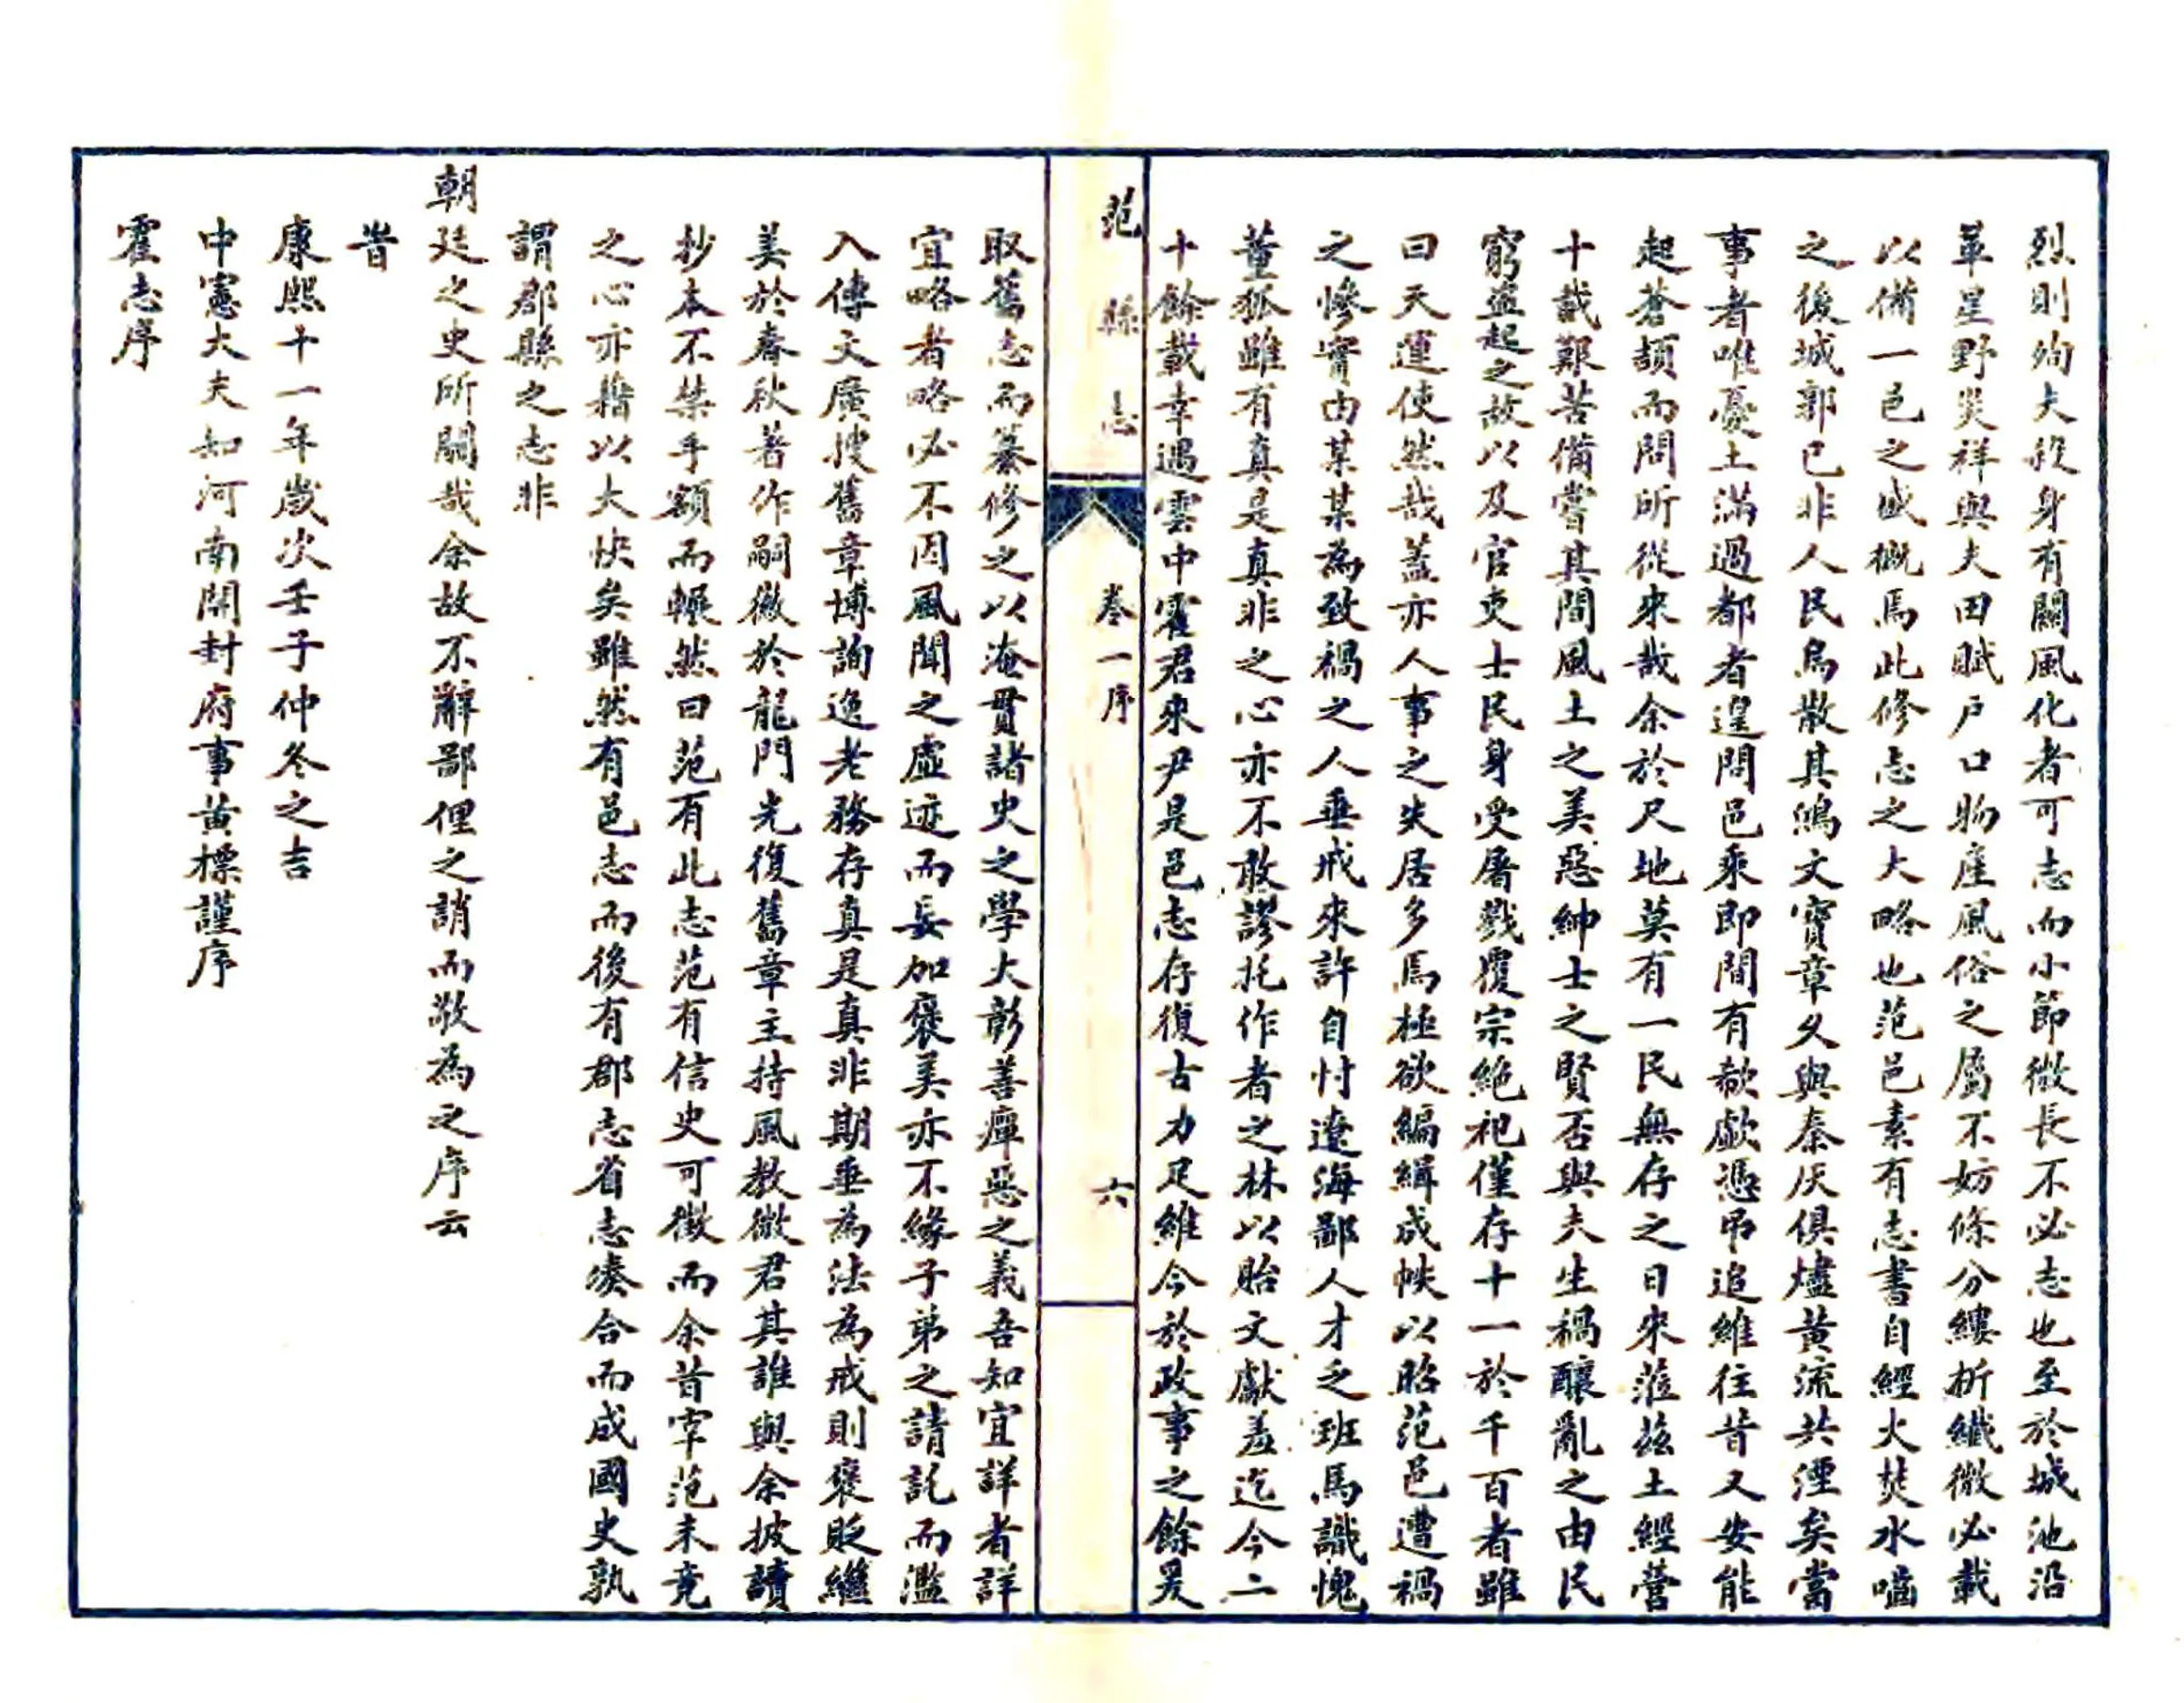 烈則殉夫歿身有關風化者可志而小節微長不必志也至於城池沿
革星野災祥與夫田賦戶口物產風俗之屬不妨條分縷析纖微必載
以備一邑之盛概焉此修志之大略也范邑素有志書自經火焚水嚙
之後城郭已非人民烏散其鴻文寶章久與秦灰俱燼黃流共湮矣當
事者唯憂土滿過都者遑問邑乘即間有欷歔憑弔追維往昔又安能
起蒼頡而問所從來哉余於尺地莫有一民無存之日來蒞茲土經營
十載艱苦備嘗其間風土之美惡紳士之賢否與夫生禍釀亂之由民
窮盜起之故以及官吏士民身受屠戮覆宗絕祀僅存十一於千百者雖
曰天運使然哉蓋亦人事之失居多焉極欲編緝成帙以昭范邑遭禍
之慘實由某某為致禍之人垂戒來許自忖遼海鄙人才乏班馬識愧
董狐雖有真是真非之心亦不敢謬托作者之林以貽文獻羞迄今二
十餘載幸遇雲中霍君來尹是邑志存復古力足維今於政事之餘爰
范縣志 卷一序 六
取舊志而纂修之以淹貫諸史之學大彰善癉惡之義吾知宜詳者詳
宜略者略必不因風聞之虛迹而妄加褒美亦不緣子弟之請託而濫
入傳文廣搜舊章博詢逸老務存真是真非期垂為法為戒則褒貶繼
美於春秋著作嗣徽於龍門光復舊章主持風教微君其誰與余披讀
抄本不禁手額而囅然曰范有此志范有信史可徵而余昔宰范未竟
之心亦藉以大快矣雖然有邑志而後有郡志省志湊合而成國史孰
謂郡縣之志非
朝廷之史所關哉余故不辭鄙俚之誚而敬為之序云
旹
康熙十一年歲次壬子仲冬之吉
中憲大夫知河南開封府事黃標謹序
霍志序